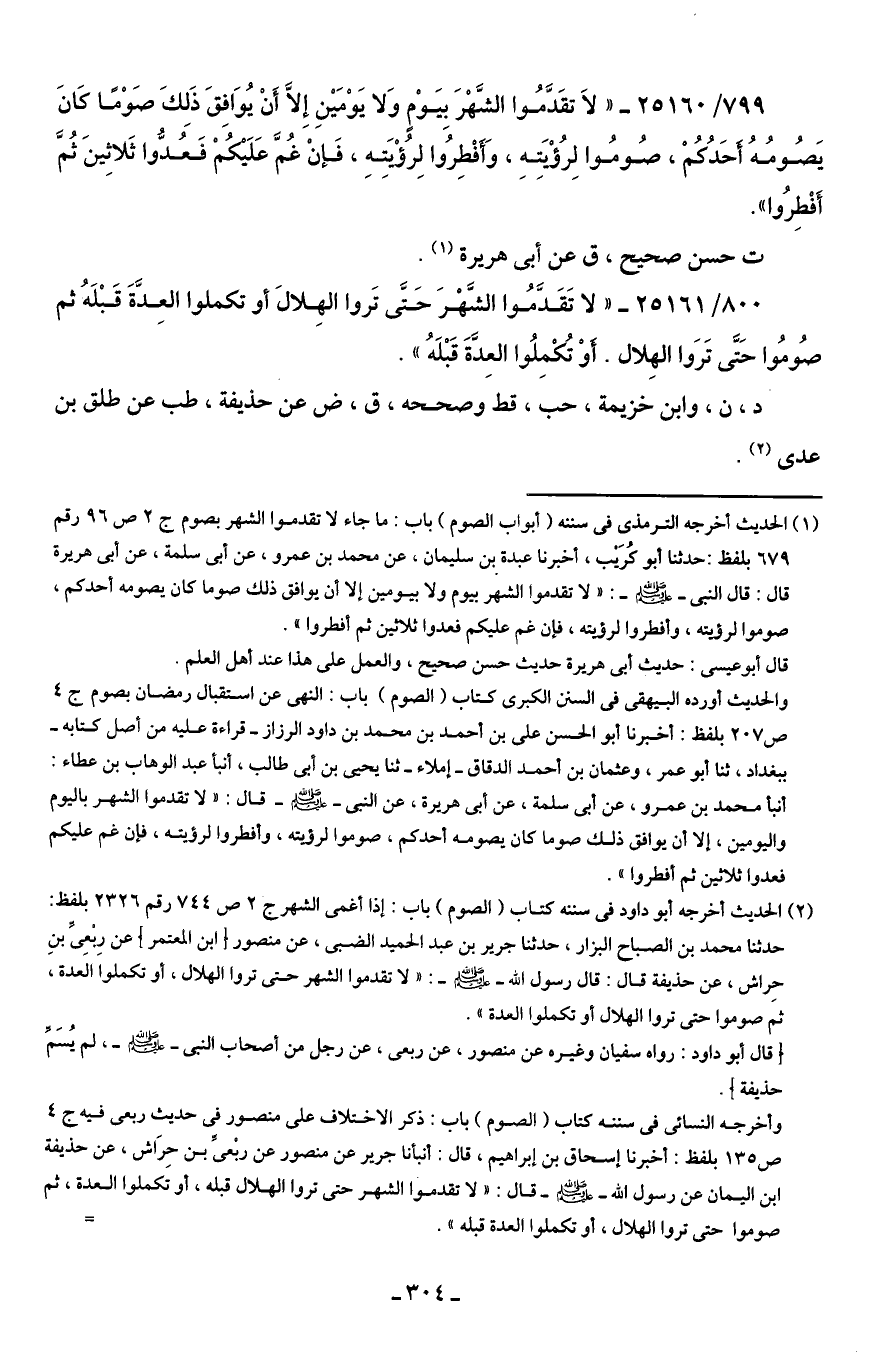 ٧٩٩/ ٢٥١٦٠ ـ « لاَ تقَدَّمُوا الشَّهْرَ بِيَوْمٍ وَلا يَوْمَيْنِ إلاَّ أَنْ يُوَافِقَ ذَلِكَ صَوْمًا كَانَ
يَصُومُهُ أَحَدُكُمْ ، صُومُوا لِرُؤْيَتِهِ ، وَأَفْطِرُوا لِرُؤْيَتِهِ ، فَإِنْ غُمَّ عَلَيْكُمْ فَعُدُّوا ثَلاثِينَ ثُمَّ
أَفْطِرُوا».
ت حسن صحيح ، ق عن أبى هريرة (١) .
٨٠٠/ ٢٥١٦١ ـ « لا تَقَدَّمُوا الشَّهْرَ حَتَّى تَروا الهِلالَ أو تكملوا العِدَّةَ قَبْلَهُ ثم
صُومُوا حَتَّى تَرَوا الهِلال . أَوْ تُكْمِلُوا العِدَّةَ قَبْلَهُ » .
د ، ن ، وابن خزيمة ، حب ، قط وصححه ، ق ، ض عن حذيفة ، طب عن طلق بن
عدى (٢) .
(١) الحديث أخرجه الترمذى فى سننه ( أبواب الصوم ) باب : ما جاء لا تقدموا الشهر بصوم ج ٢ ص ٩٦ رقم
٦٧٩ بلفظ :حدثنا أبو كُرَيْب ، أخبرنا عبدة بن سليمان ، عن محمد بن عمرو ، عن أبى سلمة ، عن أبى هريرة
قال : قال النبى ـ ﷺ ـ : « لا تقدموا الشهر بيوم ولا بيومين إلا أن يوافق ذلك صوما كان يصومه أحدكم ،
صوموا لرؤيته ، وأفطروا لرؤيته ، فإن غم عليكم فعدوا ثلاثين ثم أفطروا » .
قال أبوعيسى : حديث أبى هريرة حديث حسن صحيح ، والعمل على هذا عند أهل العلم .
والحديث أورده البيهقى فى السنن الكبرى كتاب ( الصوم ) باب : النهى عن استقبال رمضان بصوم ج ٤
ص٢٠٧ بلفظ : أخبرنا أبو الحسن على بن أحمد بن محمد بن داود الرزاز ـ قراءة عليه من أصل كتابه ـ
ببغداد ، ثنا أبو عمر ، وعثمان بن أحمد الدقاق ـ إملاء ـ ثنا يحيى بن أبى طالب ، أنبأ عبد الوهاب بن عطاء :
أنبأ محمد بن عمرو ، عن أبى سلمة ، عن أبى هريرة ، عن النبى ـ ﷺ ـ قال : « لا تقدموا الشهر باليوم
واليومين ، إلا أن يوافق ذلك صوما كان يصومه أحدكم ، صوموا لرؤيته ، وأفطروا لرؤيته ، فإن غم عليكم
فعدوا ثلاثين ثم أفطروا » .
(٢) الحديث أخرجه أبو داود فى سننه كتاب ( الصوم ) باب : إذا أغمى الشهر ج ٢ ص ٧٤٤ رقم ٢٣٢٦ بلفظ:
حدثنا محمد بن الصباح البزار ، حدثنا جرير بن عبد الحميد الضبى ، عن منصور { ابن المعتمر } عن رِبْعىِّ بنِ
حِراش ، عن حذيفة قال : قال رسول الله ـ ﷺ ـ : « لا تقدموا الشهر حتى تروا الهلال ، أو تكملوا العدة ،
ثم صوموا حتى تروا الهلال أو تكملوا العدة » .
{ قال أبو داود : رواه سفيان وغيره عن منصور ، عن ربعى ، عن رجل من أصحاب النبى ـ ﷺ ـ ، لم يُسَمِّ
حذيفة } .
وأخرجه النسائى فى سننه كتاب ( الصوم ) باب : ذكر الاختلاف على منصور فى حديث ربعى فيه ج ٤
ص١٣٥ بلفظ : أخبرنا إسحاق بن إبراهيم ، قال : أنبأنا جرير عن منصور عن ربْعىِّ بن حِرَاش ، عن حذيفة
ابن اليمان عن رسول الله ـ ﷺ ـ قال : « لا تقدموا الشهر حتى تروا الهلال قبله ، أو تكملوا العدة ، ثم
صوموا حتى تروا الهلال ، أو تكملوا العدة قبله » . =
ـ ٣٠٤ ـ